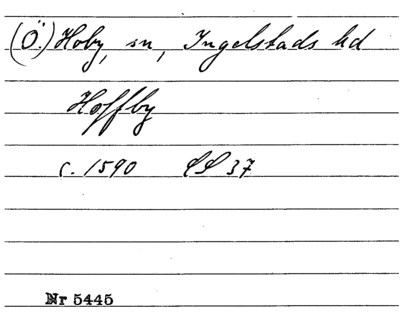 (Ö.) Hoby, sn, Ingelstads hd
Hoffby
c. 1590 LL 37
Nr 5445